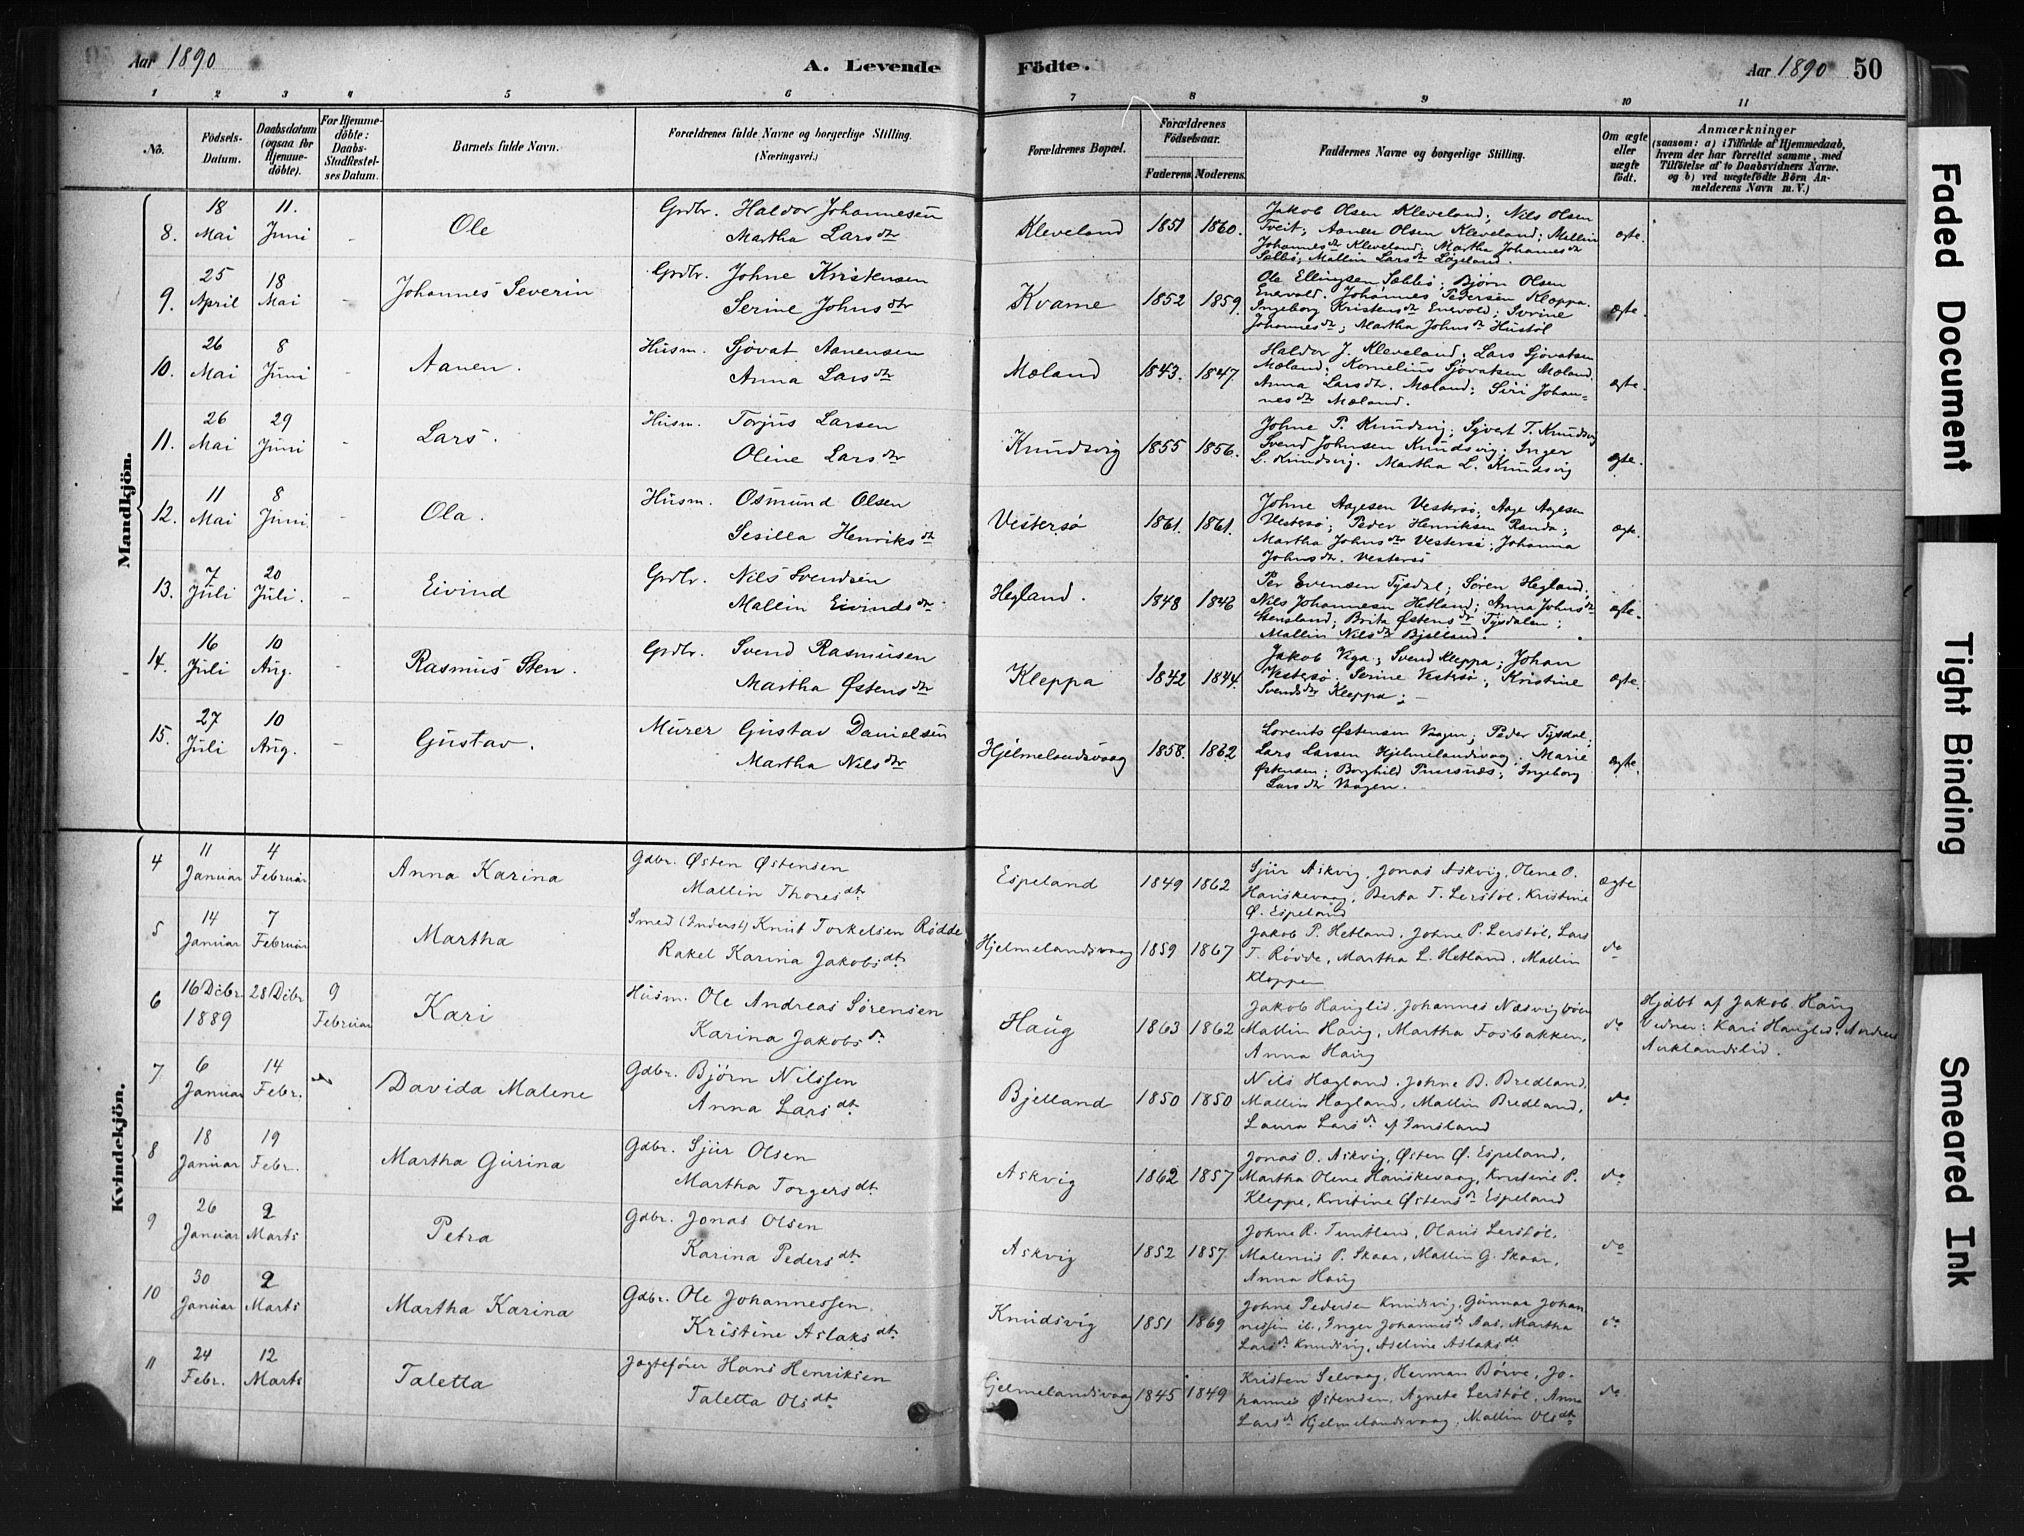 Aar 1890
A. Levende Födte.
Aar 1890 50
1 2 3 4 5 6 7 8 9 10 11
No.
Födsels-Datum.
Daabsdatum (ogsaa for Hjemmedöbte).
For Hjemmedöbte: Daabs-Stadfæstelses Datum.
Barnets fulde Navn.
Forældrenes fulde Navne og borgerlige Stilling. (Næringsvei.)
Forældrenes Bopæl.
Forældrenes Födselsaar.
Faderens Moderens
Faddernes Navne og borgerlige Stilling.
Om ægte eller uægte födt.
Anmærkninger
(saasom: a) i Tilfælde af Hjemmedaab, hvem der har forrettet samme, med Tilföielse af to Daabsvidners Navne, og b) ved uægtefödte Börn Anmelderens Navn m. V.)
Mandkjön.
8. 18 Mai 11. Juni - Ole Grdbr. Haldor Johannesen Martha Larsdtr Kleveland 1851 1860. Jakob Olsen Kleveland; Nils Olsen Tveit; Aanen Olsen Kleveland; Mallin Johannesdtr Kleveland; Martha Johannesdtr Mallin Larsdtr ægte.
9. 25 April 18 Mai - Johannes Severin Grdbr. Johne Kristensen Serine Johnsdtr Kvame 1852 1859. Ole Ellingsen Bjørn Olsen Johannes Pedersen Kleppa. Ingeborg Kristensdtr Serine Johannesdtr; Martha Johnsdtr Hustöl ægte.
10. 26 Mai 8 Juni - Aanen. Husm. Sjövat Aanensen Anna Larsdtr Mæland 1843. 1847. Haldor J. Kleveland; Lars Sjövatsen Mæland; Kornelius Sjövatsen Mæland. Anna Larsdtr. Mæland; Siri Johannesdtr Mæland. ægte.
11. 26 Mai 29 Juni - Lars. Husm. Torjus Larsen Oline Larsdtr Knudsvig 1855 1856. Johne P. Knudsvig; Sjvert T. Knudsvig Svend Johnsen Knudsvig; Inger L. Knudsvig. Martha L. Knudsvig ægte.
12. 11 Mai 8 Juni - Ola. Husm. Osmund Olsen Sesilla Henriksdtr Vestersø 1861. 1861. Johne Aagesen Vestersø; Aage Aagesen Vestersø; Peder Henriksen Randa; Martha Johnsdtr Vestersø; Johanna Johnsdtr. Vestersø ægte.
13. 7 Juli 20 Juli. - Eivind Grdbr. Nils Svendsen Mallin Eivindsdtr Hegland. 1848 1846 Per Evensen Tysdal; Søren Hegland; Nils Johannesen Hetland; Anna Johnsdtr Stensland; Brita Østensdtr Tysdalen; Mallin Nilsdtr Bjelland. ægte.
14. 16 Juli 10 Aug. - Rasmus Sten. Grdbr. Svend Rasmusen Martha Østensdtr Kleppa 1842 1844. Jakob Viga; Svend Kleppa; Johan Vestersø. Serine Vestersø; Kristine Svendsdtr Kleppa; - ægte.
15. 27 Juli 10 Aug. - Gustav. Murer Gustav Danielsen Martha Nilsdtr Hjelmelandsvaag 1858. 1862 Lorents Østensen Vaagen; Peder Tysdal; Lars Larsen Hjelmelandsvaag. Marie Østensen; Borghild Ingeborg Larsdtr Vaagen. ægte.
Kvindekjön.
4 11 Januar 4 Februar Anna Karina Gdbr. Østen Østensen Mallin Thoresdt. Espeland 1849 1862 Sjur Askvig. Jonas Askvig, Olene O. Hauskevaag, Berta T. Lerstøl. Kristine Ø. Espeland ægte
5 14 Januar 7 Februar Martha Smed (Inderst) Knut Torkelsen Rødde Rakel Karina Jakobsdt. Hjelmelandsvaag 1859 1867 Jakob P. Hetland, Johne P. Lerstøl, Lars T. Rødde, Martha L. Hetland, Mallin Kleppe do
6 16 Decbr. 1889 28 Decbr 9 Februar Kari Husm. Ole Andreas Sørensen Karina Jakobsd. Haug 1863 1862 Jakob Hauglid, Johannes Næsvigbøen Mallin Haug, Martha Fosbakken, Anna Haug do Hjdbt af Jakob Haug Vidner: Kari Hauglid, Andreas Auklandslid.
7 6 Januar 14 Febr. Davida Malene Gdbr. Bjørn Nilssen Anna Larsdt. Bjelland 1850 1850 Nils Hagland, Johne B. Bredland, Mallin Hagland, Mallin Bredland, Laura Larsd. af Imsland do
8 18 Januar 19 Febr. Martha Gurina Gdbr. Sjur Olsen Martha Torgersdt. Askvig 1862 1857 Jonas O. Askvig, Østen Ø. Espeland, Martha Olene Hauskevaag, Kristine P. Kleppe, Kristine Østensdt Espeland do
9 26 Januar 2 Marts Petra Gdbr. Jonas Olsen Karina Pedersdt. Askvig 1852 1857 Johne R. Tuntland, Olaus Lerstøl, Malenius P. Skaar, Mallin G. Skaar, Anna Haug do
10 30 Januar 2 Marts Martha Karina Gdbr. Ole Johannessen Kristine Aslaksdt. Knudsvig 1851 1869 Johne Pedersen Knudsvig, Gunnar Johannessen ib., Inger Johannesd. Aas, Martha Larsd. Knudsvig, Aseline Aslaksdt do
11 24 Febr. 12 Marts Taletta Jagtefører Hans Henriksen Taletta Olsdt. Hjelmelandsvaag 1845 1849 Kristen Selvaag, Herman Børve, Johannes Østensen, Agnete Lerstøl, Anna Larsd. Hjelmelandsvaag, Mallin Olsdt. do
Faded Document
Tight Binding
Smeared Ink